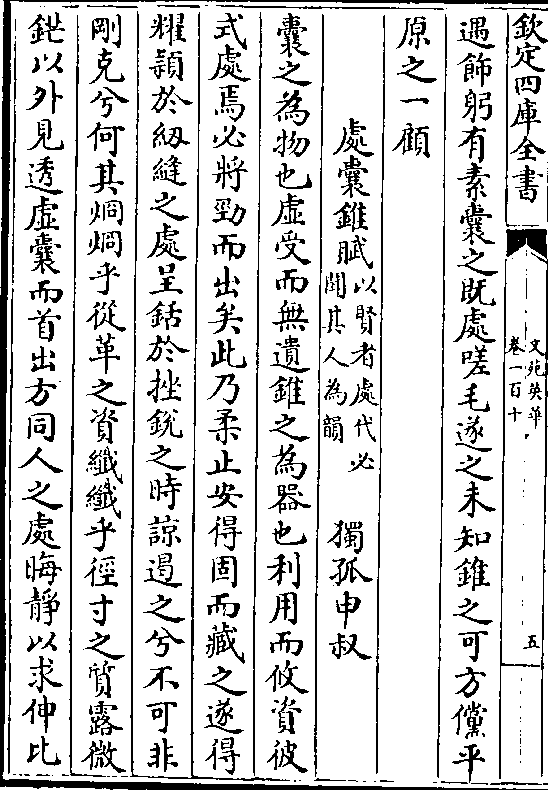 欽定四庫全書
文苑英華
卷一百十
五
遇飾躬有素囊之既處嗟毛遂之未知錐之可方儻平
原之一顧
處囊錐賦以賢者處代必
聞其人為韻
獨孤申叔
囊之為物也虛受而無遺錐之為器也利用而攸資彼
式處焉必將勁而出矣此乃柔止安得固而藏之遂得
耀穎於紉縫之處呈銛於挫銳之時諒遏之兮不可非
剛克兮何其炯炯乎從革之資纖纖乎徑寸之質露微
鋩以外見透虛囊而首出方同人之處晦靜以求伸比